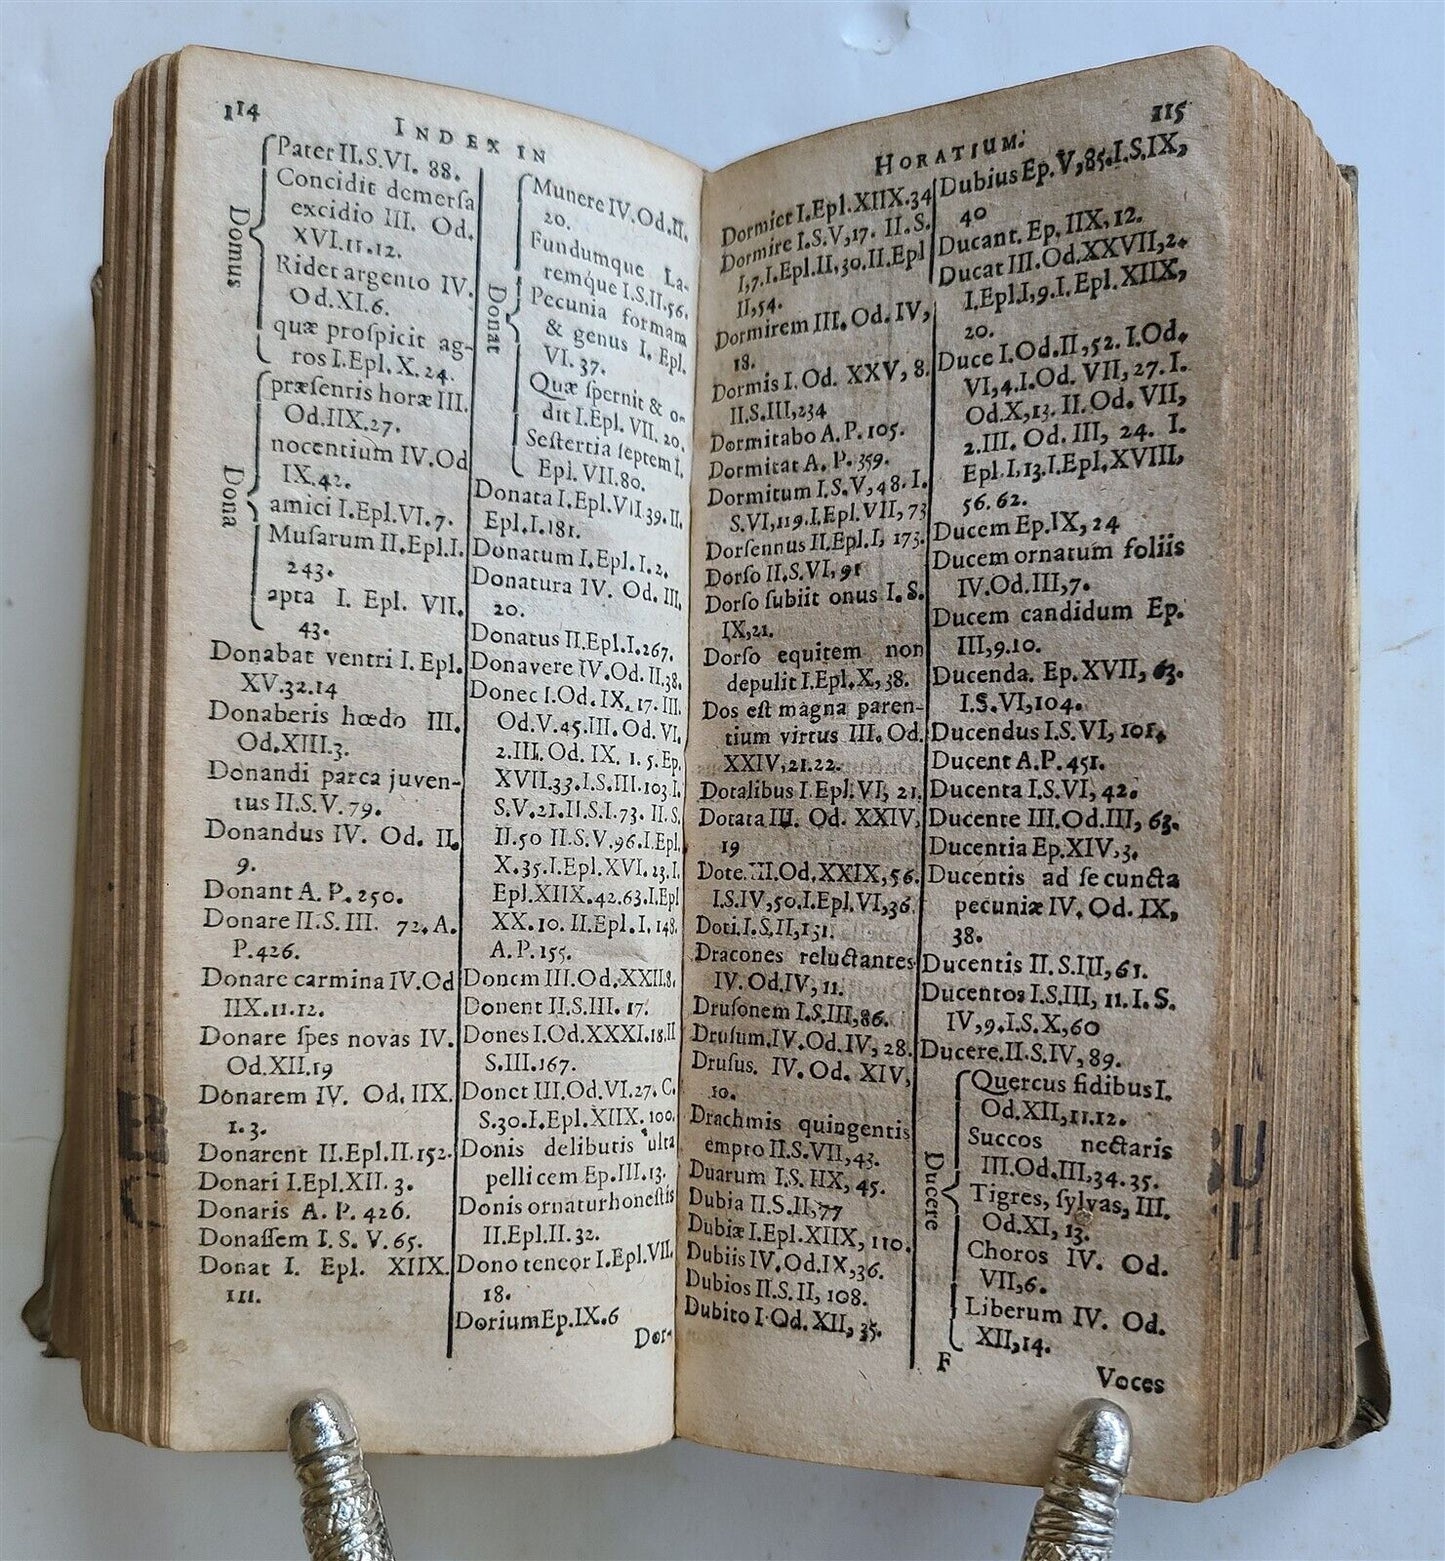 114
INDEX IN
Domus
Pater II.S.VI. 88.
Concidit demerſa
excidio III. Od.
XVI.11.12.
Ridet argento IV.
Od.XI.6.
quæ proſpicit ag-
ros I.Epl.X.24.
Dona
præſentis horæ III.
Od.IIX.27.
nocentium IV.Od
IX.42.
amici I.Epl.VI.7.
Muſarum II.Epl.I.
243.
apta I. Epl. VII.
43.
Donabat ventri I.Epl.
XV.32.14
Donaberis hœdo III.
Od.XIII.3.
Donandi parca juven-
tus II.S.V.79.
Donandus IV. Od. II.
9.
Donant A. P. 250.
Donare II.S.III. 72. A.
P.426.
Donare carmina IV.Od
IIX.11.12.
Donare ſpes novas IV.
Od.XII.19
Donarem IV. Od. IIX.
1.3.
Donarent II.Epl.II.152.
Donari I.Epl.XII.3.
Donaris A. P. 426.
Donaſſem I. S. V. 65.
Donat I. Epl. XIIX.
111.
Donat
Munere IV.Od.II.
20.
Fundumque La-
remque I.S.II.56.
Pecunia formam
& genus I. Epl.
VI. 37.
Quæ ſpernit & o-
dit I.Epl.VII.20.
Seſtertia ſeptem I.
Epl. VII.80.
Donata I.Epl.VII.39.II.
Epl.I.181.
Donatum I.Epl.I.2.
Donatura IV. Od. III.
20.
Donatus II.Epl.I.267.
Donavere IV.Od.II.38.
Donec I.Od.IX.17.III.
Od.V.45.III.Od.VI.
2.III.Od.IX. 1.5.Ep.
XVII.33.I.S.III.103.I.
S.V.21.II.S.I.73. II.S.
II.50 II.S.V.96.I.Epl.
X.35.I.Epl.XVI.23.I.
Epl.XIIX.42.63.I.Epl
XX.10.II.Epl.I.148.
A.P.155.
Donem III.Od.XXII.8.
Donent II.S.III.17.
Dones I.Od.XXXI.18.II
S.III.167.
Donet III.Od.VI.27.C.
S.30.I.Epl.XIIX.100.
Donis delibutis ulta
pellicem Ep.III.13.
Donis ornatur honeſtis
II.Epl.II.32.
Dono teneor I.Epl.VII.
18.
Dorium Ep.IX.6
Dor-
115
HORATIUM.
Dormiet I.Epl.XIIX.34
Dormire I.S.V,17. II.S.
I,7.I.Epl.II,30.II.Epl
II,54.
Dormirem III. Od. IV,
18.
Dormis I.Od. XXV, 8.
II.S.III,234
Dormitabo A.P.105.
Dormitat A. P. 359.
Dormitum I.S.V,48.I.
S.VI,119.I.Epl.VII,73
Dorſennus II.Epl.I, 173.
Dorſo II.S.VI,91
Dorſo ſubiit onus I. S.
IX,21.
Dorſo equitem non
depulit I.Epl.X,38.
Dos eſt magna paren-
tium virtus III. Od.
XXIV,21.22.
Dotalibus I.Epl.VI, 21.
Dotata III. Od. XXIV,
19
Dote.III.Od.XXIX,56.
I.S.IV,50.I.Epl.VI,36.
Doti.I.S.II,131.
Dracones reluctantes
IV.Od.IV,11.
Druſonem I.S.III,86.
Druſum.IV.Od.IV,28.
Druſus. IV. Od. XIV,
10.
Drachmis quingentis
empto II.S.VII,43.
Duarum I.S. IIX, 45.
Dubia II.S.II,77
Dubiæ I.Epl.XIIX, 110.
Dubiis IV.Od.IX,36.
Dubios II.S.II, 108.
Dubito I.Od.XII, 35.
Dubius Ep.V,85.I.S.IX,
40
Ducant. Ep. IIX, 12.
Ducat III.Od.XXVII,2.
I.Epl.I,9.I.Epl.XIIX,
20.
Duce I.Od.II,52. I.Od.
VI,4.I.Od. VII, 27.I.
Od.X,13. II.Od. VII,
2.III. Od. III, 24. I.
Epl.I,13.I.Epl.XVIII,
56.62.
Ducem Ep.IX,24
Ducem ornatum foliis
IV.Od.III,7.
Ducem candidum Ep.
III,9.10.
Ducenda. Ep. XVII, 63.
I.S.VI,104.
Ducendus I.S.VI, 101.
Ducent A.P.451.
Ducenta I.S.VI,42.
Ducente III.Od.III, 63.
Ducentia Ep.XIV,3.
Ducentis ad ſe cuncta
pecuniæ IV. Od. IX,
38.
Ducentis II. S.III,61.
Ducentos I.S.III, 11. I. S.
IV,9.I.S.X,60
Ducere.II.S.IV, 89.
Ducere
Quercus fidibus I.
Od.XII,11.12.
Succos nectaris
III.Od.III,34.35.
Tigres, ſylvas, III.
Od.XI, 13.
Choros IV. Od.
VII,6.
Liberum IV. Od.
XII,14.
F
Voces